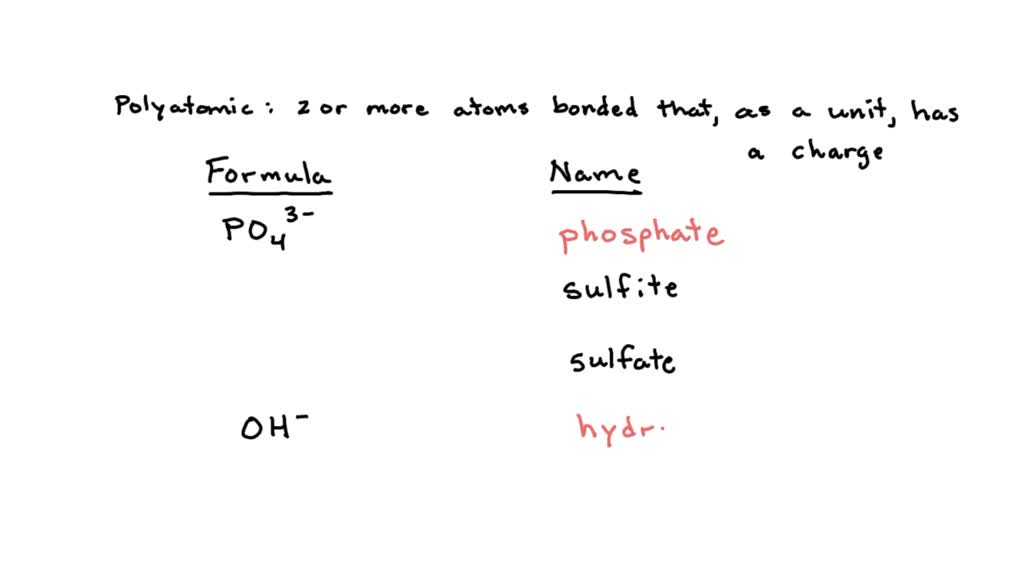 Polyatomic: 2 or more atoms bonded that, as a unit, has
a charge
Formula Name
PO₄³⁻ phosphate
sulfite
sulfate
OH⁻ hydr